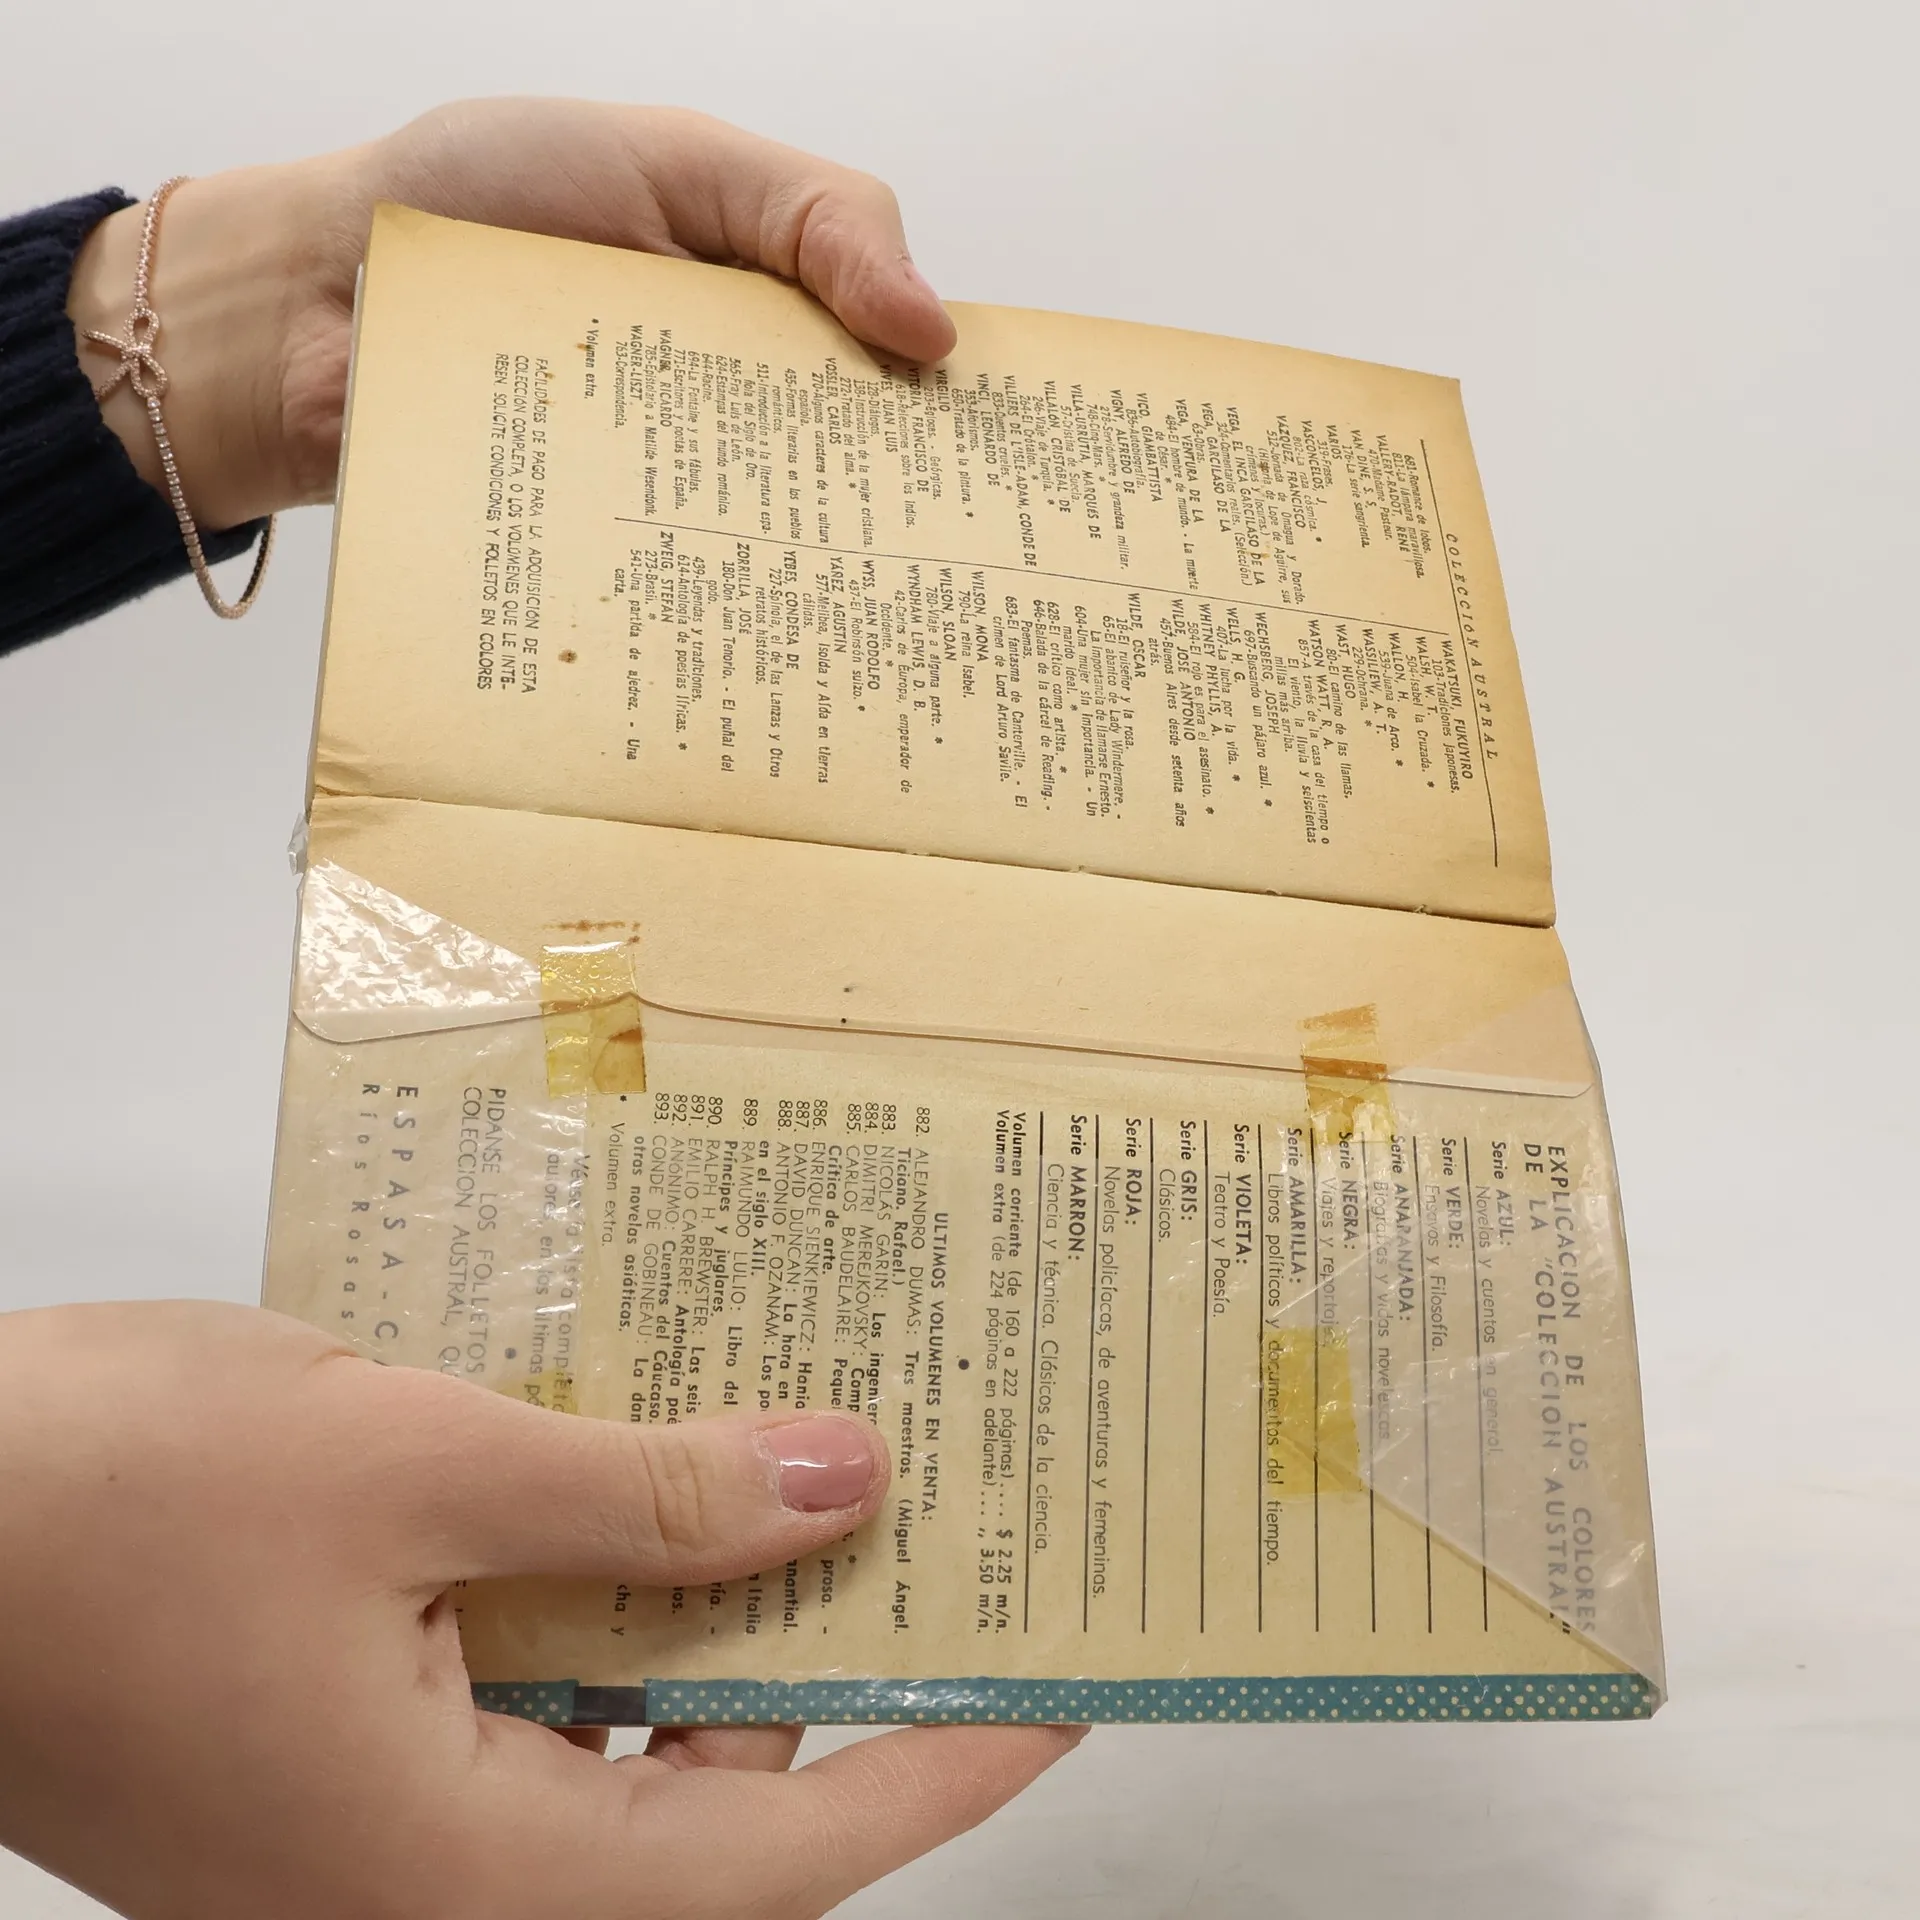 COLECCIÓN AUSTRAL
681-Romance de lobos.
811-La lámpara maravillosa.
VALLERY-RADOT, RENÉ
470-Madame Pasteur.
VAN DINE, S. S.
176-La serie sangrienta.
VARIOS
319-Frases.
VASCONCELOS, J.
802-La raza cósmica. *
VÁZQUEZ, FRANCISCO
512-Jornada de Omagua y Dorado.
(Historia de Lope de Aguirre, sus
crímenes y locuras.)
VEGA, EL INCA GARCILASO DE LA
324-Comentarios reales. (Selección.)
VEGA, GARCILASO DE LA
63-Obras.
VEGA, VENTURA DE LA
484-El hombre de mundo. - La muerte
de César. *
VICO, GIAMBATTISTA
836-Autobiografía.
VIGNY, ALFREDO DE
278-Servidumbre y grandeza militar.
748-Cinq-Mars. *
VILLA-URRUTIA, MARQUÉS DE
57-Cristina de Suecia.
VILLALÓN, CRISTÓBAL DE
246-Viaje de Turquía. *
264-El Crótalon. *
VILLIERS DE L'ISLE-ADAM, CONDE DE
833-Cuentos crueles. *
VINCI, LEONARDO DE
353-Aforismos.
650-Tratado de la pintura. *
VIRGILIO
203-Églogas. - Geórgicas.
VITORIA, FRANCISCO DE
618-Relecciones sobre los indios.
VIVES, JUAN LUIS
128-Diálogos.
138-Instrucción de la mujer cristiana.
272-Tratado del alma. *
VOSSLER, CARLOS
270-Algunos caracteres de la cultura
española.
435-Formas literarias en los pueblos
románticos.
511-Introducción a la literatura espa-
ñola del Siglo de Oro.
565-Fray Luis de León.
624-Estampas del mundo románico.
644-Racine.
694-La Fontaine y sus fábulas.
771-Escritores y poetas de España.
WAGNER, RICARDO
785-Epistolario a Matilde Wesendonk.
WAGNER-LISZT
763-Correspondencia.
* Volumen extra.
WAKATSUKI, FUKUYIRO
103-Tradiciones japonesas.
WALSH, W. T.
504-Isabel la Cruzada. *
WALLON, H.
539-Juana de Arco. *
WASSILIEW, A. T.
229-Ochrana. *
WAST, HUGO
80-El camino de las llamas.
WATSON WATT, R. A.
857-A través de la casa del tiempo o
El viento, la lluvia y seiscientas
millas más arriba.
WECHSBERG, JOSEPH
697-Buscando un pájaro azul. *
WELLS, H. G.
407-La lucha por la vida. *
WHITNEY PHYLLIS, A.
584-El rojo es para el asesinato. *
WILDE, JOSÉ ANTONIO
457-Buenos Aires desde setenta años
atrás.
WILDE, OSCAR
18-El ruiseñor y la rosa.
65-El abanico de Lady Windermere. -
La importancia de llamarse Ernesto.
604-Una mujer sin importancia. - Un
marido ideal. *
628-El crítico como artista. *
646-Balada de la cárcel de Reading. -
Poemas.
683-El fantasma de Canterville. - El
crimen de Lord Arturo Savile.
WILSON, MONA
790-La reina Isabel.
WILSON, SLOAN
780-Viaje a alguna parte. *
WYNDHAM LEWIS, D. B.
42-Carlos de Europa, emperador de
Occidente. *
WYSS, JUAN RODOLFO
437-El Robinsón suizo. *
YÁÑEZ, AGUSTÍN
577-Melibea, Isolda y Alda en tierras
cálidas.
YEBES, CONDESA DE
727-Spínola, el de las Lanzas y Otros
retratos históricos.
ZORRILLA, JOSÉ
180-Don Juan Tenorio. - El puñal del
godo.
439-Leyendas y tradiciones.
614-Antología de poesías líricas. *
ZWEIG, STEFAN
273-Brasil. *
541-Una partida de ajedrez. - Una
carta.
FACILIDADES DE PAGO PARA LA ADQUISICIÓN DE ESTA
COLECCIÓN COMPLETA O LOS VOLÚMENES QUE LE INTE-
RESEN. SOLICITE CONDICIONES Y FOLLETOS EN COLORES
EXPLICACION DE LOS COLORES
DE LA "COLECCION AUSTRAL"
Serie AZUL:
Novelas y cuentos en general.
Serie VERDE:
Ensayos y Filosofía.
Serie ANARANJADA:
Biografías y vidas novelescas.
Serie NEGRA:
Viajes y reportajes.
Serie AMARILLA:
Libros políticos y documentos del tiempo.
Serie VIOLETA:
Teatro y Poesía.
Serie GRIS:
Clásicos.
Serie ROJA:
Novelas policíacas, de aventuras y femeninas.
Serie MARRON:
Ciencia y técnica. Clásicos de la ciencia.
Volumen corriente (de 160 a 222 páginas).... $ 2.25 m/n.
Volumen extra (de 224 páginas en adelante)... „ 3.50 m/n.
ULTIMOS VOLUMENES EN VENTA:
882. ALEJANDRO DUMAS: Tres maestros. (Miguel Ángel.
Ticiano. Rafael.)
883. NICOLÁS GARIN: Los ingenier
884. DIMITRI MEREJKOVSKY: Comp
885. CARLOS BAUDELAIRE: Peque prosa. -
Crítica de arte.
886. ENRIQUE SIENKIEWICZ: Hania
887. DAVID DUNCAN: La hora en nantial.
888. ANTONIO F. OZANAM: Los po n Italia
en el siglo XIII.
889. RAIMUNDO LULIO: Libro del ría. -
Príncipes y juglares.
890. RALPH H. BREWSTER: Las seis
891. EMILIO CARRERE: Antología poé
892. ANÓNIMO: Cuentos del Cáucaso.
893. CONDE DE GOBINEAU: La dan cha y
otras novelas asiáticas.
* Volumen extra.
Véase la lista completa
autores, en las últimas pá
PIDANSE LOS FOLLETOS
COLECCION AUSTRAL, QU
ESPASA-C
Ríos Rosas